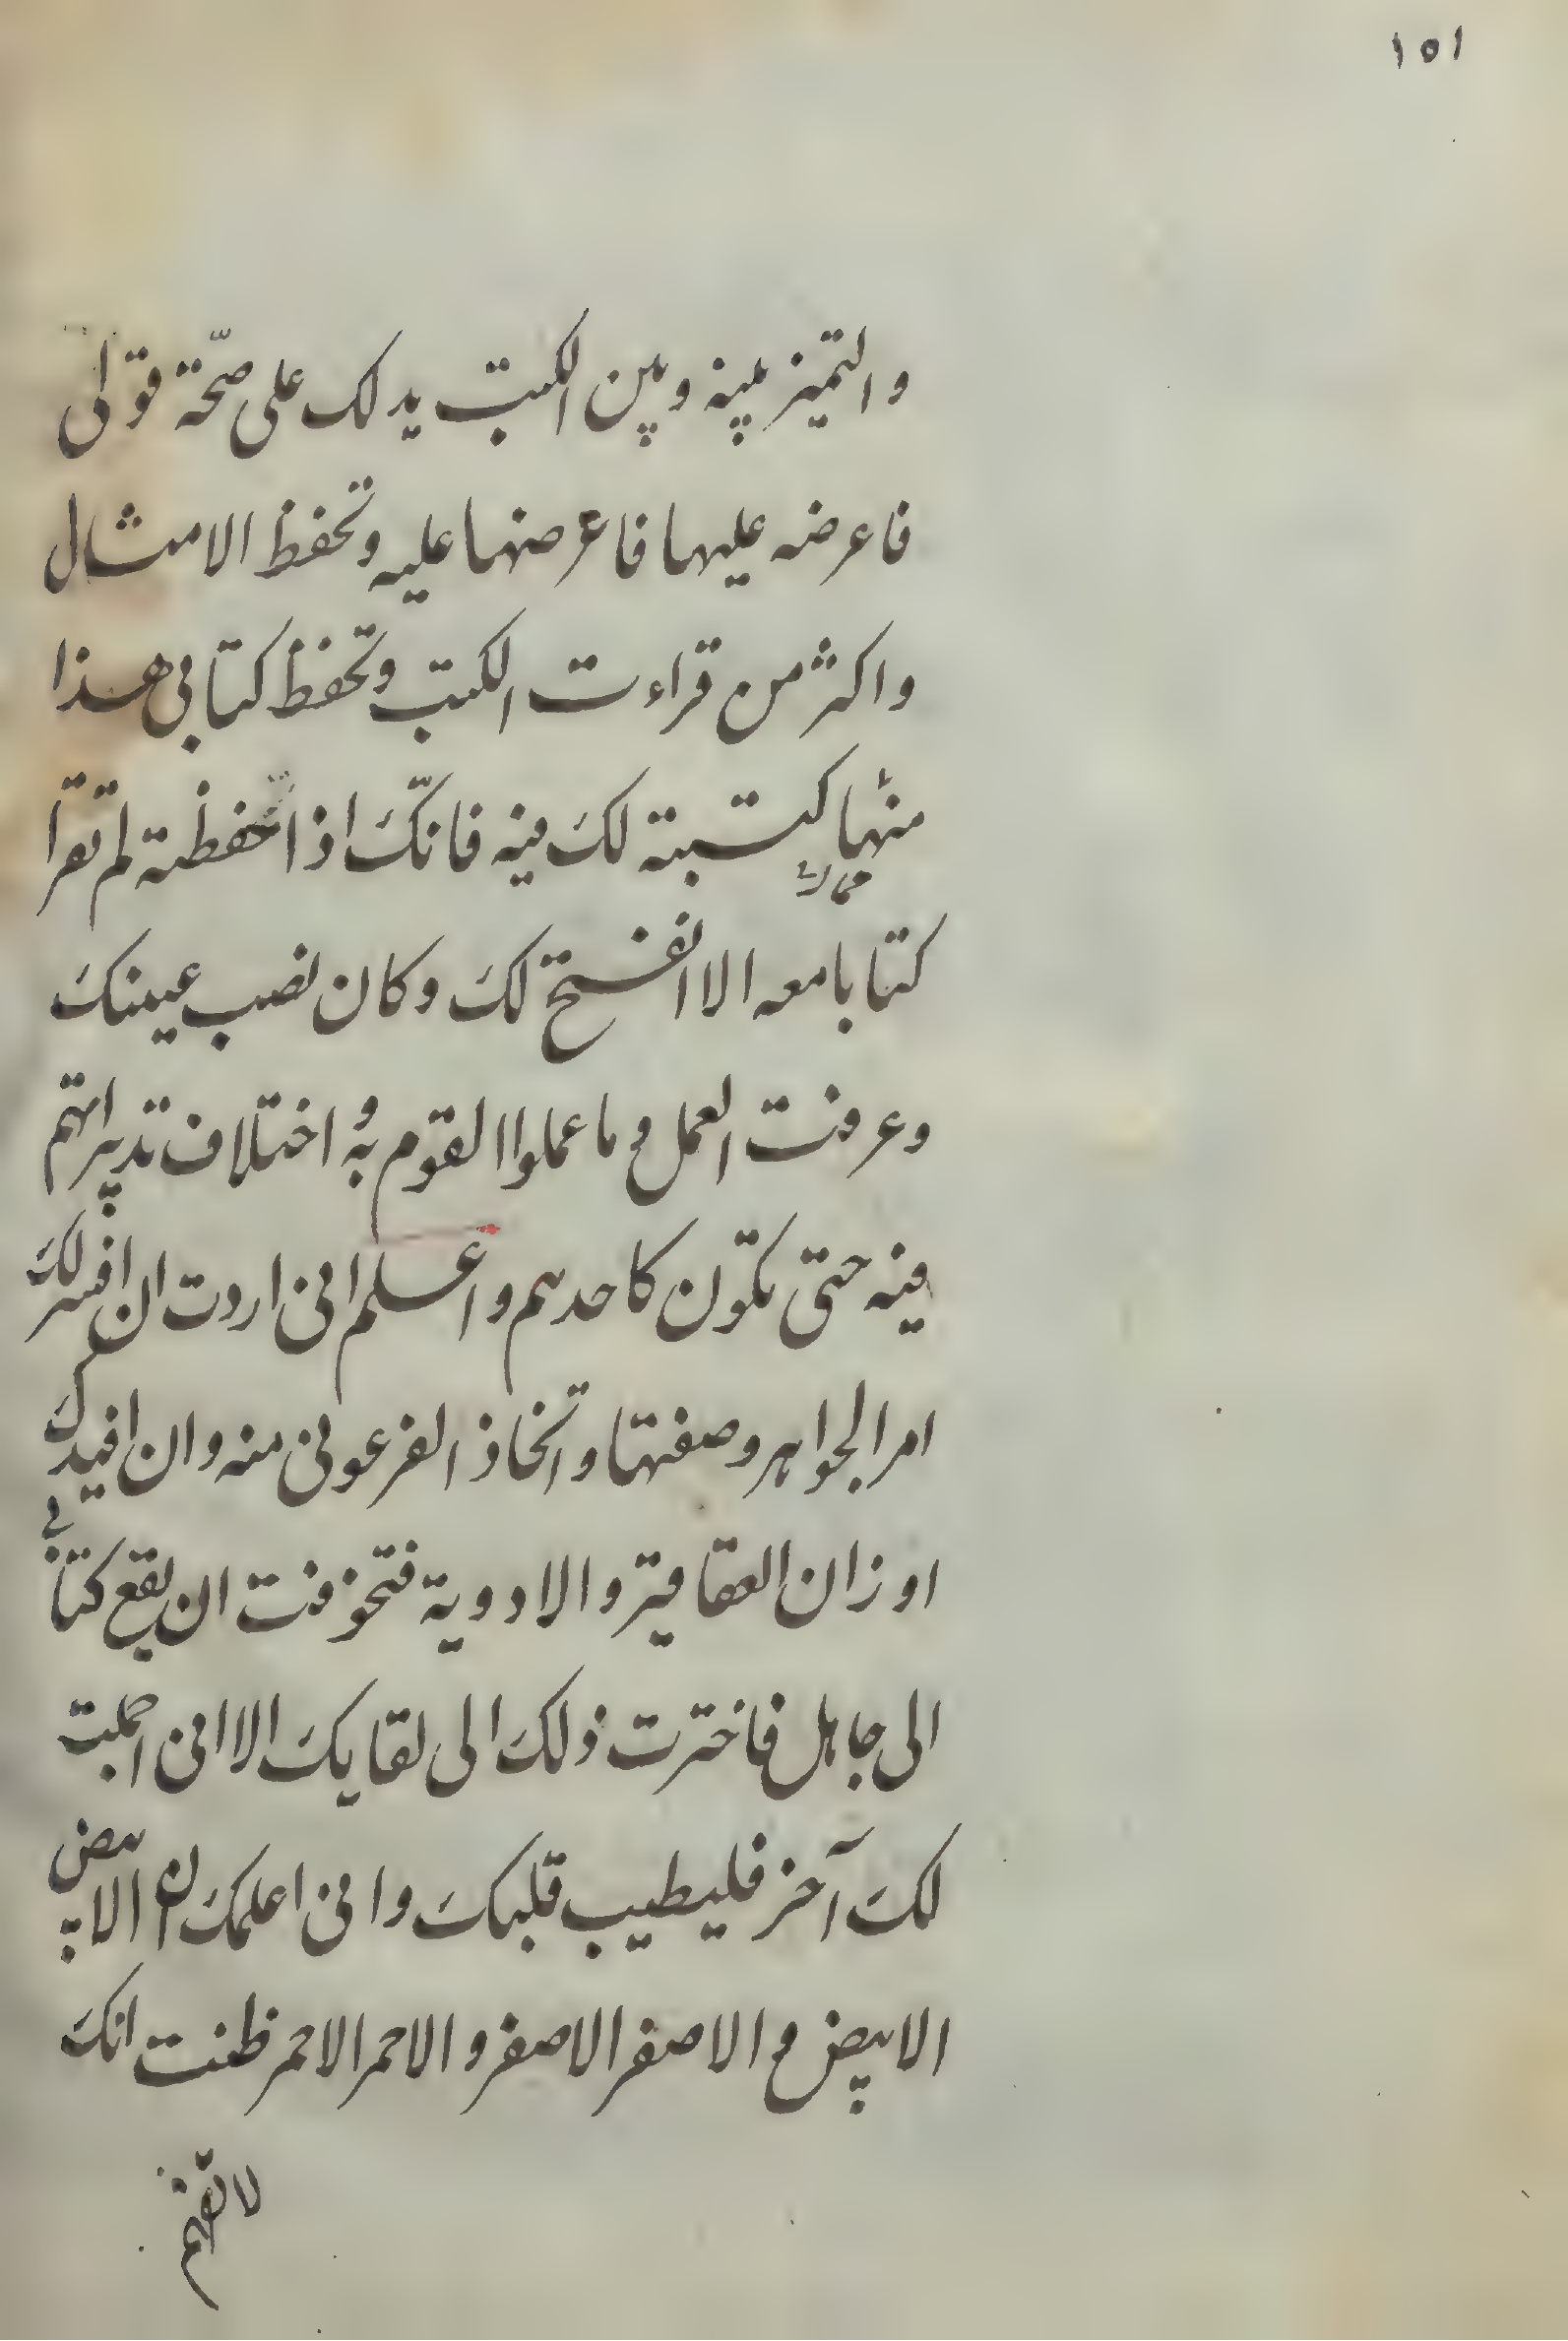 ١٥١
والتميز بينه وبين الكتب يدلك على صحّة قولى
فاعرضه عليها فاعرضها عليه وتحفظ الامثال
واكثر من قراءت الكتب وتحفظ كتابي هذا
منها كتبته لكَ فيه فانّكَ اذا حفظته لم تقرا
كتابا معه الا انفتح لكَ وكان نصب عينكَ
وعرفت العمل وما عملوا القوم به و اختلاف تدبيراتهم
فيه حتى تكون كاحدهم واعلم انى اردت ان افسر لكَ
امر الجواهر وصفتها واتخاذ الفرعونى منه وان افيدكَ
اوزان العقاقير والادوية فتخوفت ان يقع كتابي
الى جاهل فاخترت ذلكَ الى لقايكَ الا انى احملت
لكَ آخر فليطيب قلبكَ وانى اعلمكَ ان الابيض
الابيض و الاصفر الاصفر والاحمر الاحمر ظننت انكَ
لا تفهم